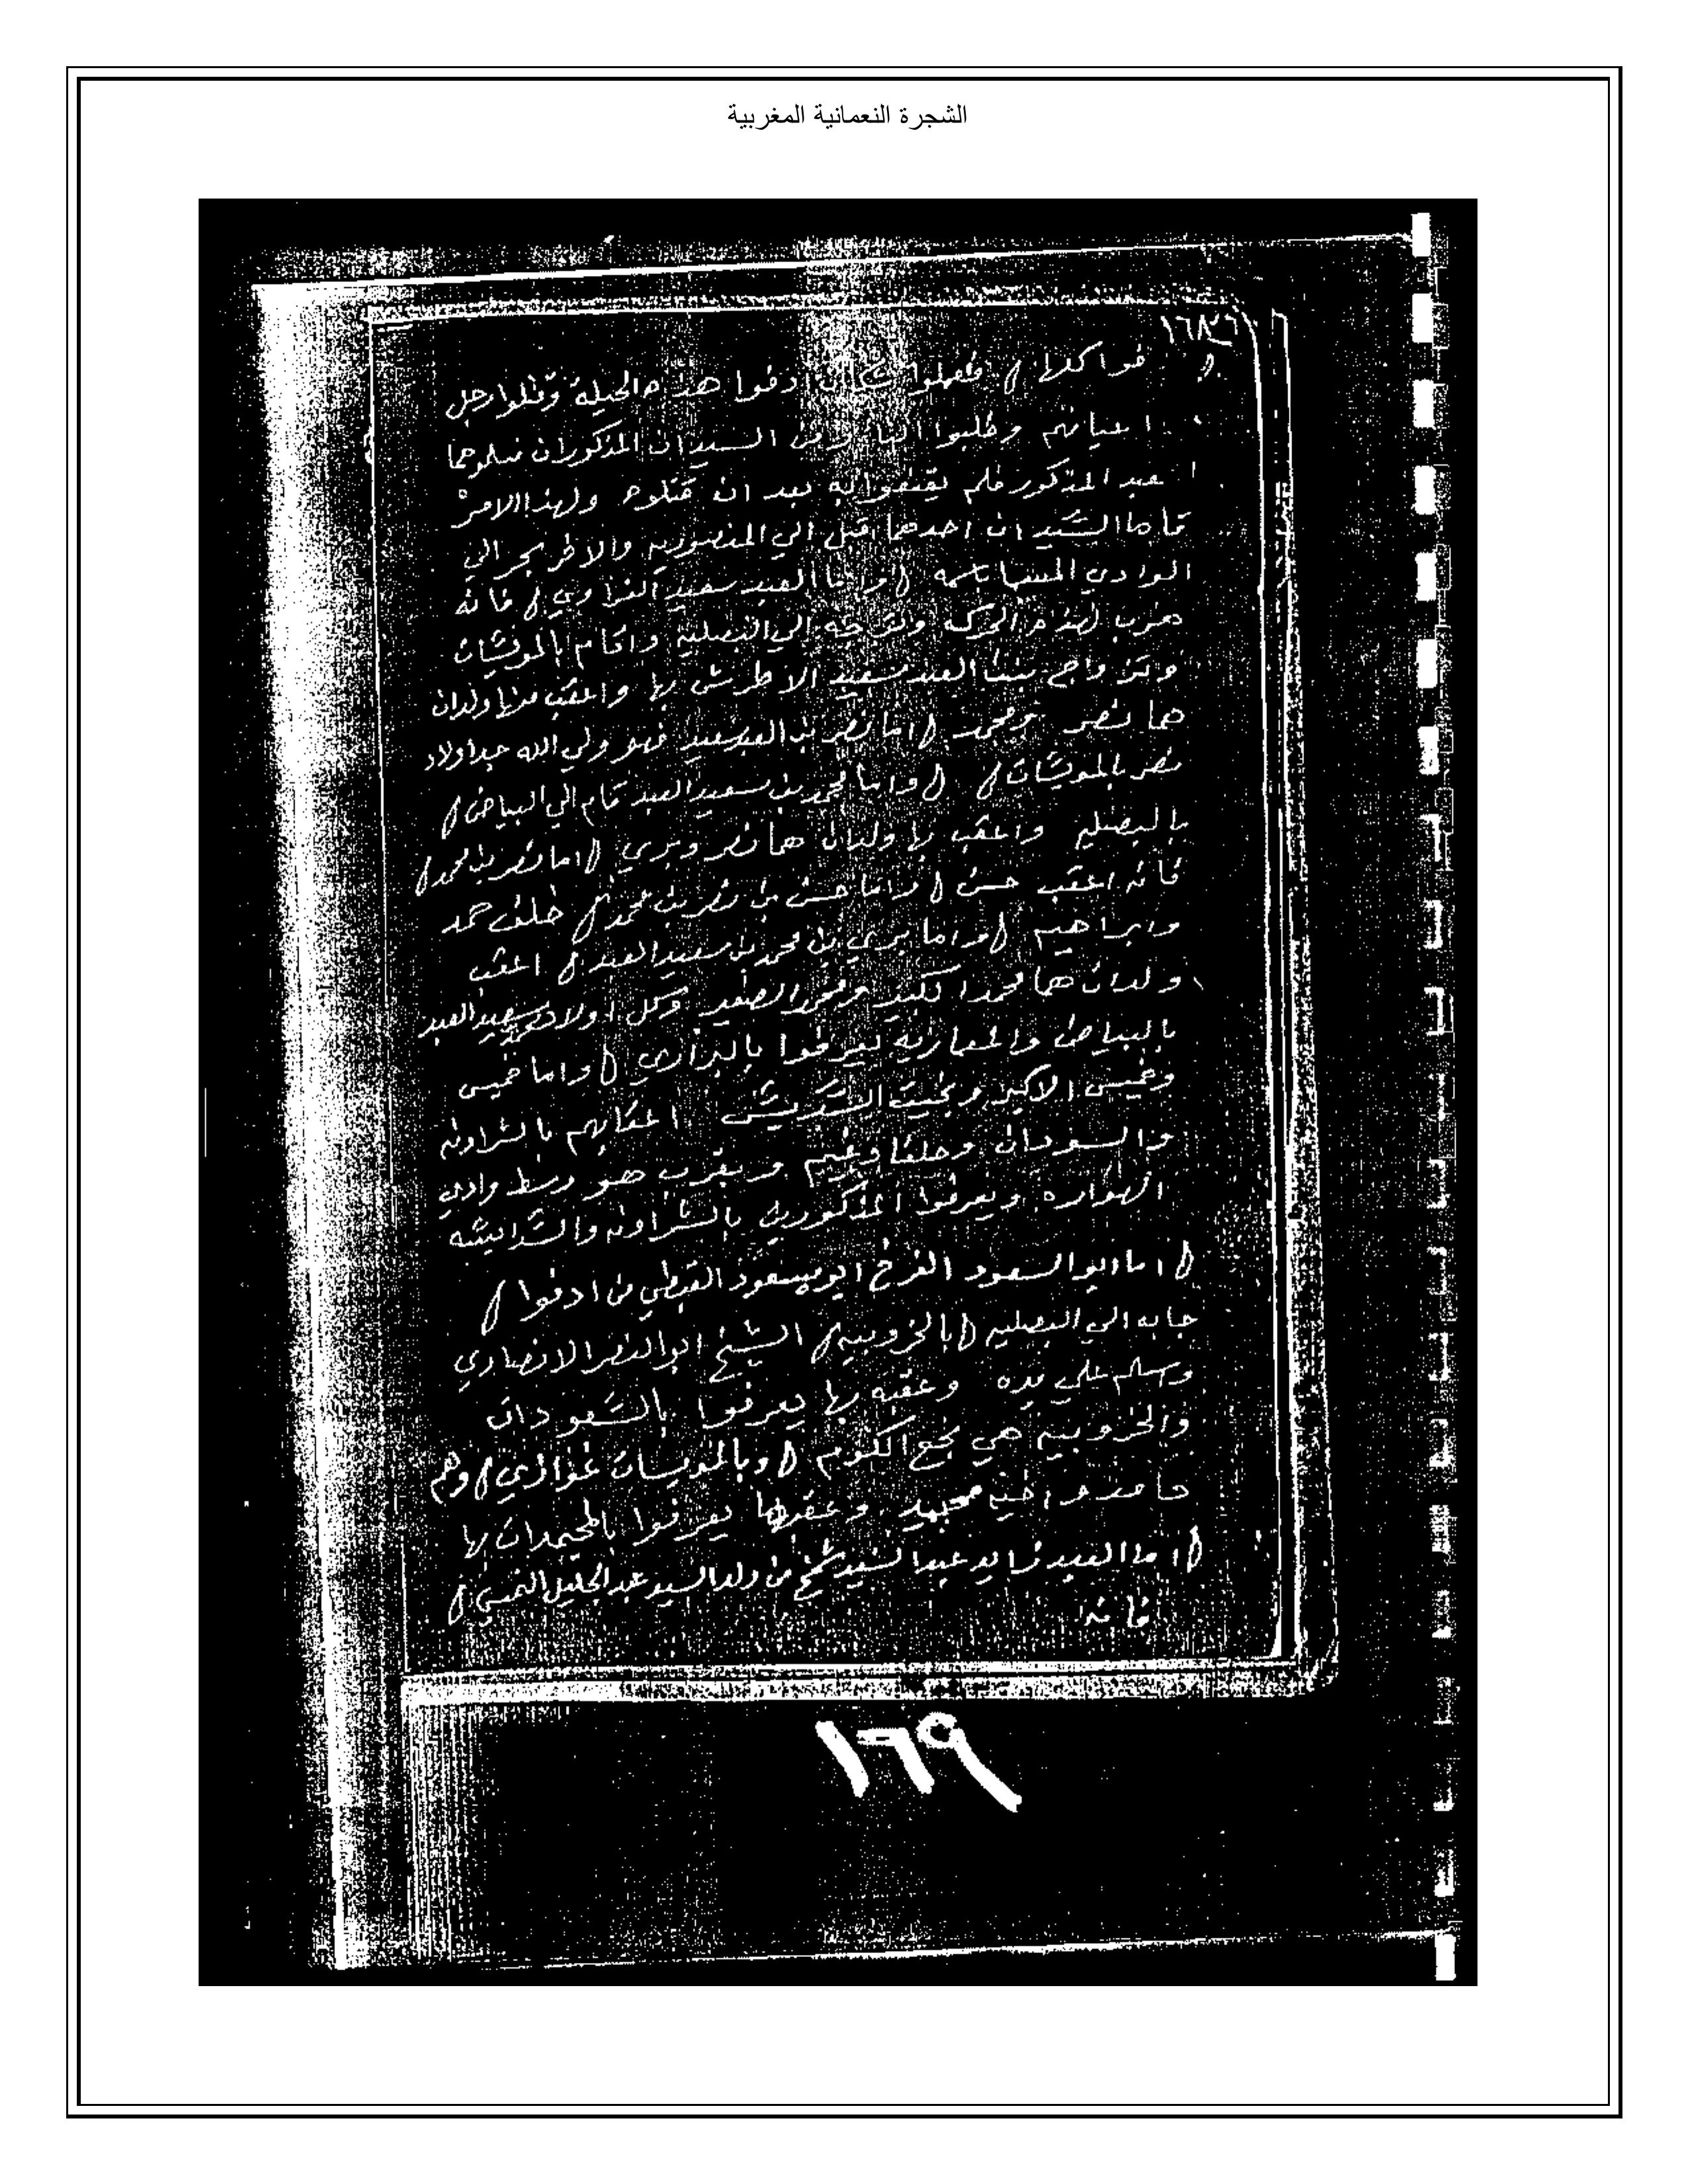 الشجرة النعمانية المغربية
فواكلا ) فعملوا سكان ادفوا هذه الحيلة وقتلوا رجل
اعيانهم وطلبوا السيدان المذكوران فسلموهما
العبد المذكور فلم يقنعوا به بعد ان قتلاه ولهذا الامر
قاما السيدان احدهما قبل الي المنصوريه والاخر بحر الي
الوادي المسما باسمه ( واما العبد سعيد ) فانه
هرب لهذه الحركه وتوجه الي البصليه واقام بالمويسات
وتزواج بنت العبد سعيد الاطرش بها واعقب منها ولدان
هما نصر ومحمد ( اما نصر بن العبد سعيد فهو ولي الله جد اولاد
نصر بالمويسات ) ( واما محمد بن سعيد العبد قام الي البياض )
بالبصليه واعقب بها ولدان هما نصر وبري ( اما نصر بن محمد )
فانه اعقب حسن ( واما حسن بن نصر بن محمد ) خلف حمد
وابراهيم ( واما بري بن محمد بن سعيد العبد ) اعقب
ولدان هما محمد الكبير ومحمد الصغير وكل اولاد سعيد العبد
بالبياض والمعاريه ليعرفوا ( واما خميس
وخميس الاكبر وبخيت اعقابهم بالشراونه
والسودان وحلفا وبقرب هو وسط وادي
الهواره ويعرفوا المذكورين بالشراونه
( اما ابو السعود الفرخ ابو مسعود القبطي من ادفوا )
جابه الي البصليه ( بالخروبيه ) الشيخ ابو النصر الانصاري
وسلم علي يده وعقبه بها يعرفوا بالسعودات
والخروبيه هي نجع الكوم ( وبالمويسات غوازي ) وهم
حامد واخيه وعقبهما يعرفوا بالمحيمدات بها
( اما العبد فايد عبد السيد من ولد السيد عبد الجليل )
فانه
١٦٩